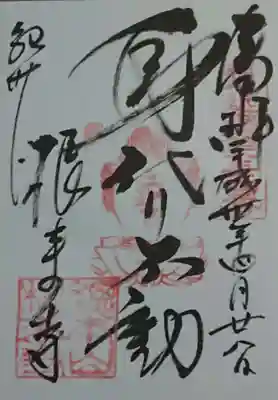 奉拝 平成卅年四月廿八日
身代り不動
紀州 根来寺